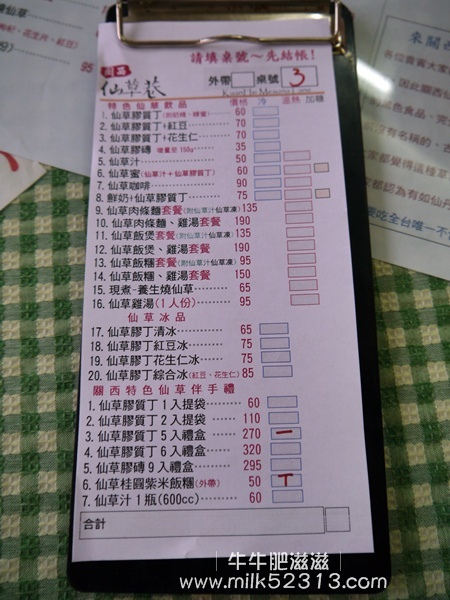 請填桌號~先結帳!
仙草花
外帶 桌號 3
特色仙草飲品 價格 冷 溫熱 加糖
1. 仙草膠質丁 60
2. 仙草膠質丁+紅豆 70
3. 仙草膠質丁+花生仁 70
4. 仙草膠磚 增量至150g 35
5. 仙草汁 50
6. 仙草蜜(仙草汁+仙草膠質丁) 60
7. 仙草咖啡 90
8. 鮮奶+仙草膠質丁 75
9. 仙草肉條麵套餐(附仙草汁仙草凍) 135
10. 仙草肉條麵、雞湯套餐 190
11. 仙草飯煲套餐(附仙草汁仙草凍) 135
12. 仙草飯煲、雞湯套餐 190
13. 仙草飯糰套餐(附仙草汁仙草凍) 95
14. 仙草飯糰、雞湯套餐 150
15. 現煮-養生燒仙草 65
16. 仙草雞湯(1人份) 95
仙草冰品
17. 仙草膠丁清冰 65
18. 仙草膠丁紅豆冰 75
19. 仙草膠丁花生仁冰 75
20. 仙草膠丁綜合冰(紅豆、花生仁) 85
關西特色仙草伴手禮
1. 仙草膠質丁1入提袋 60
2. 仙草膠質丁2入提袋 110
3. 仙草膠質丁5入禮盒 270 一
4. 仙草膠質丁6入禮盒 320
5. 仙草膠磚9入禮盒 295
6. 仙草桂圓紫米飯糰(外帶) 50 T
7. 仙草汁1瓶(600cc) 60
合計
牛牛肥滋滋
www.milk52313.com